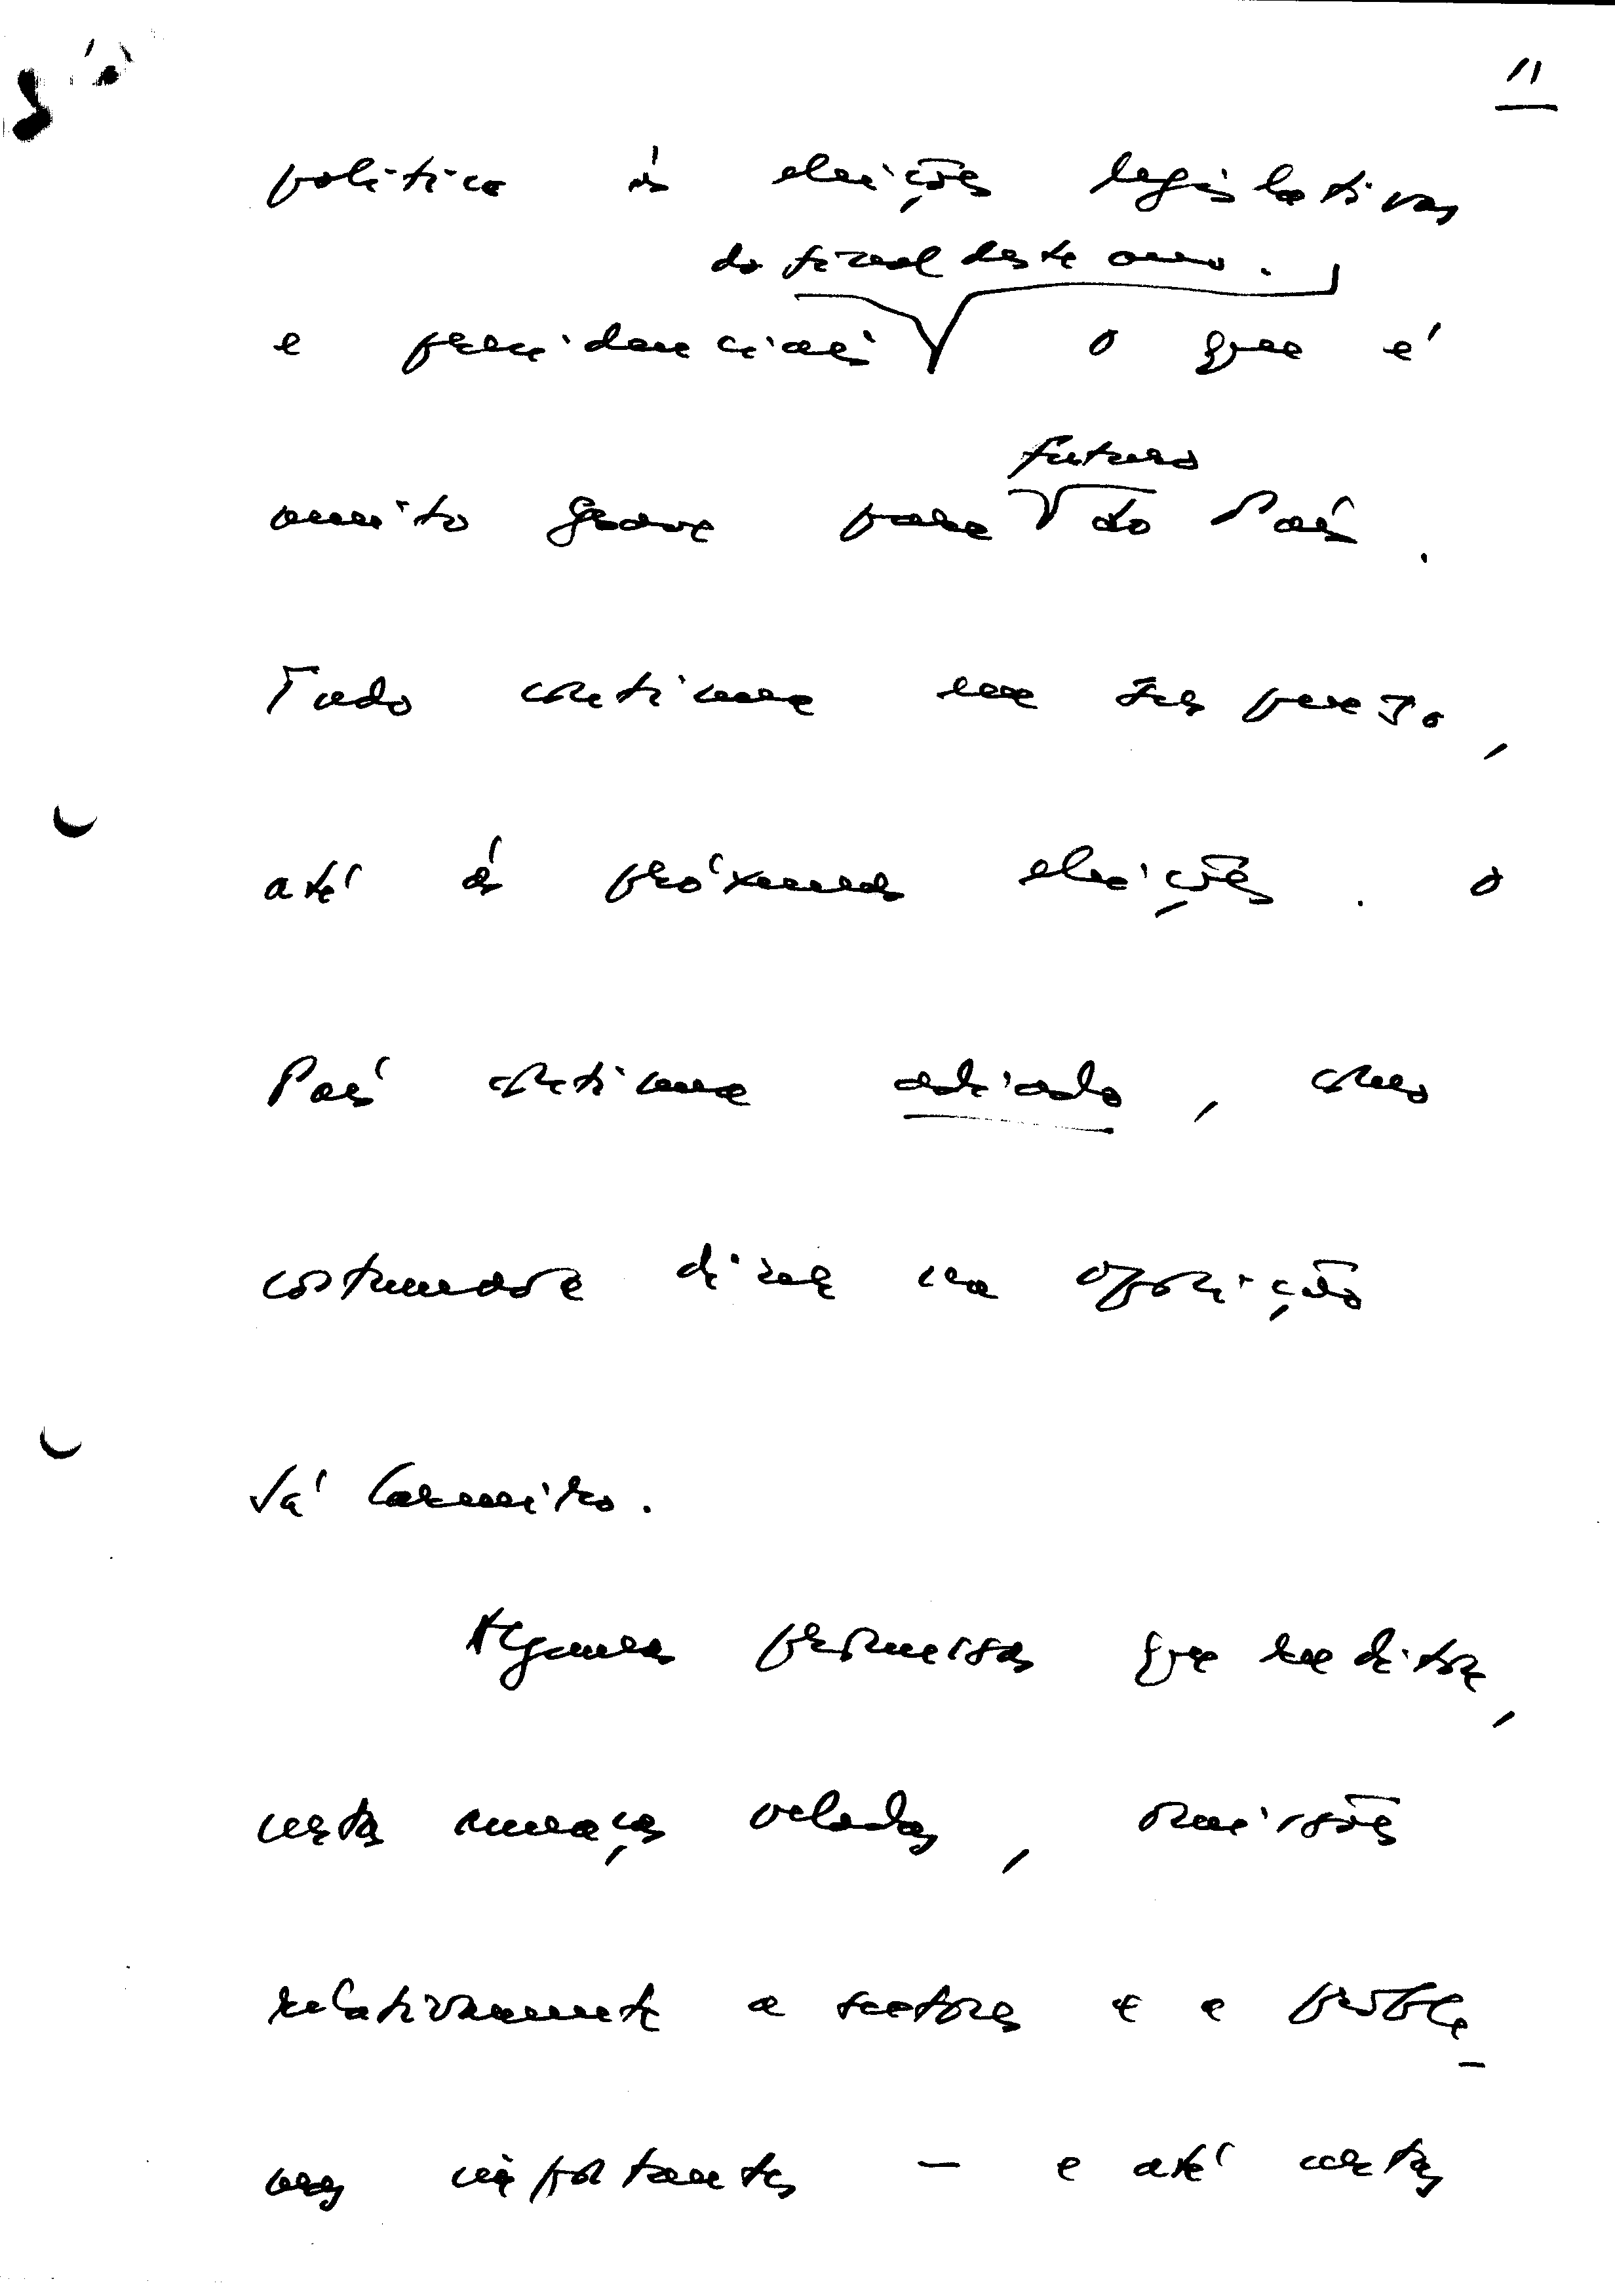 11
política às eleições legislativas
do final deste ano.
e presidenciais o que é
muito grave para
futuro
do País.
Tudo continua em suspenso,
até às próximas eleições. O
País continua adiado, como
costumava dizer na oposição
Sá Carneiro.
Algumas promessas que reeditou,
certas ameaças veladas, omissões
relativamente a sectores e a proble-
mas importantes — e até certas